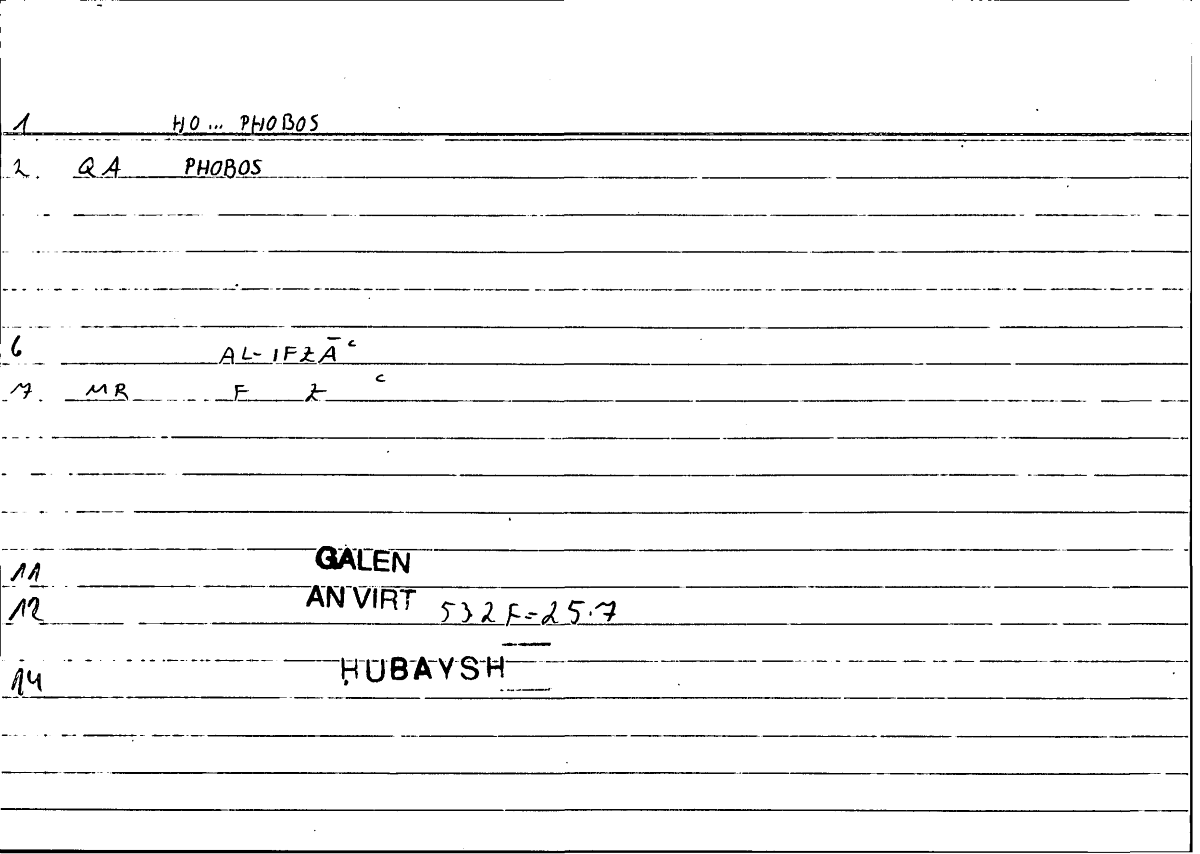 1 HO ... PHOBOS
2. QA PHOBOS
6 AL-IFZĀ ͨ
7. MR F Z ͨ
11 GALEN
12 AN VIRT 532 F=25.7
14 ḤUBAYSH